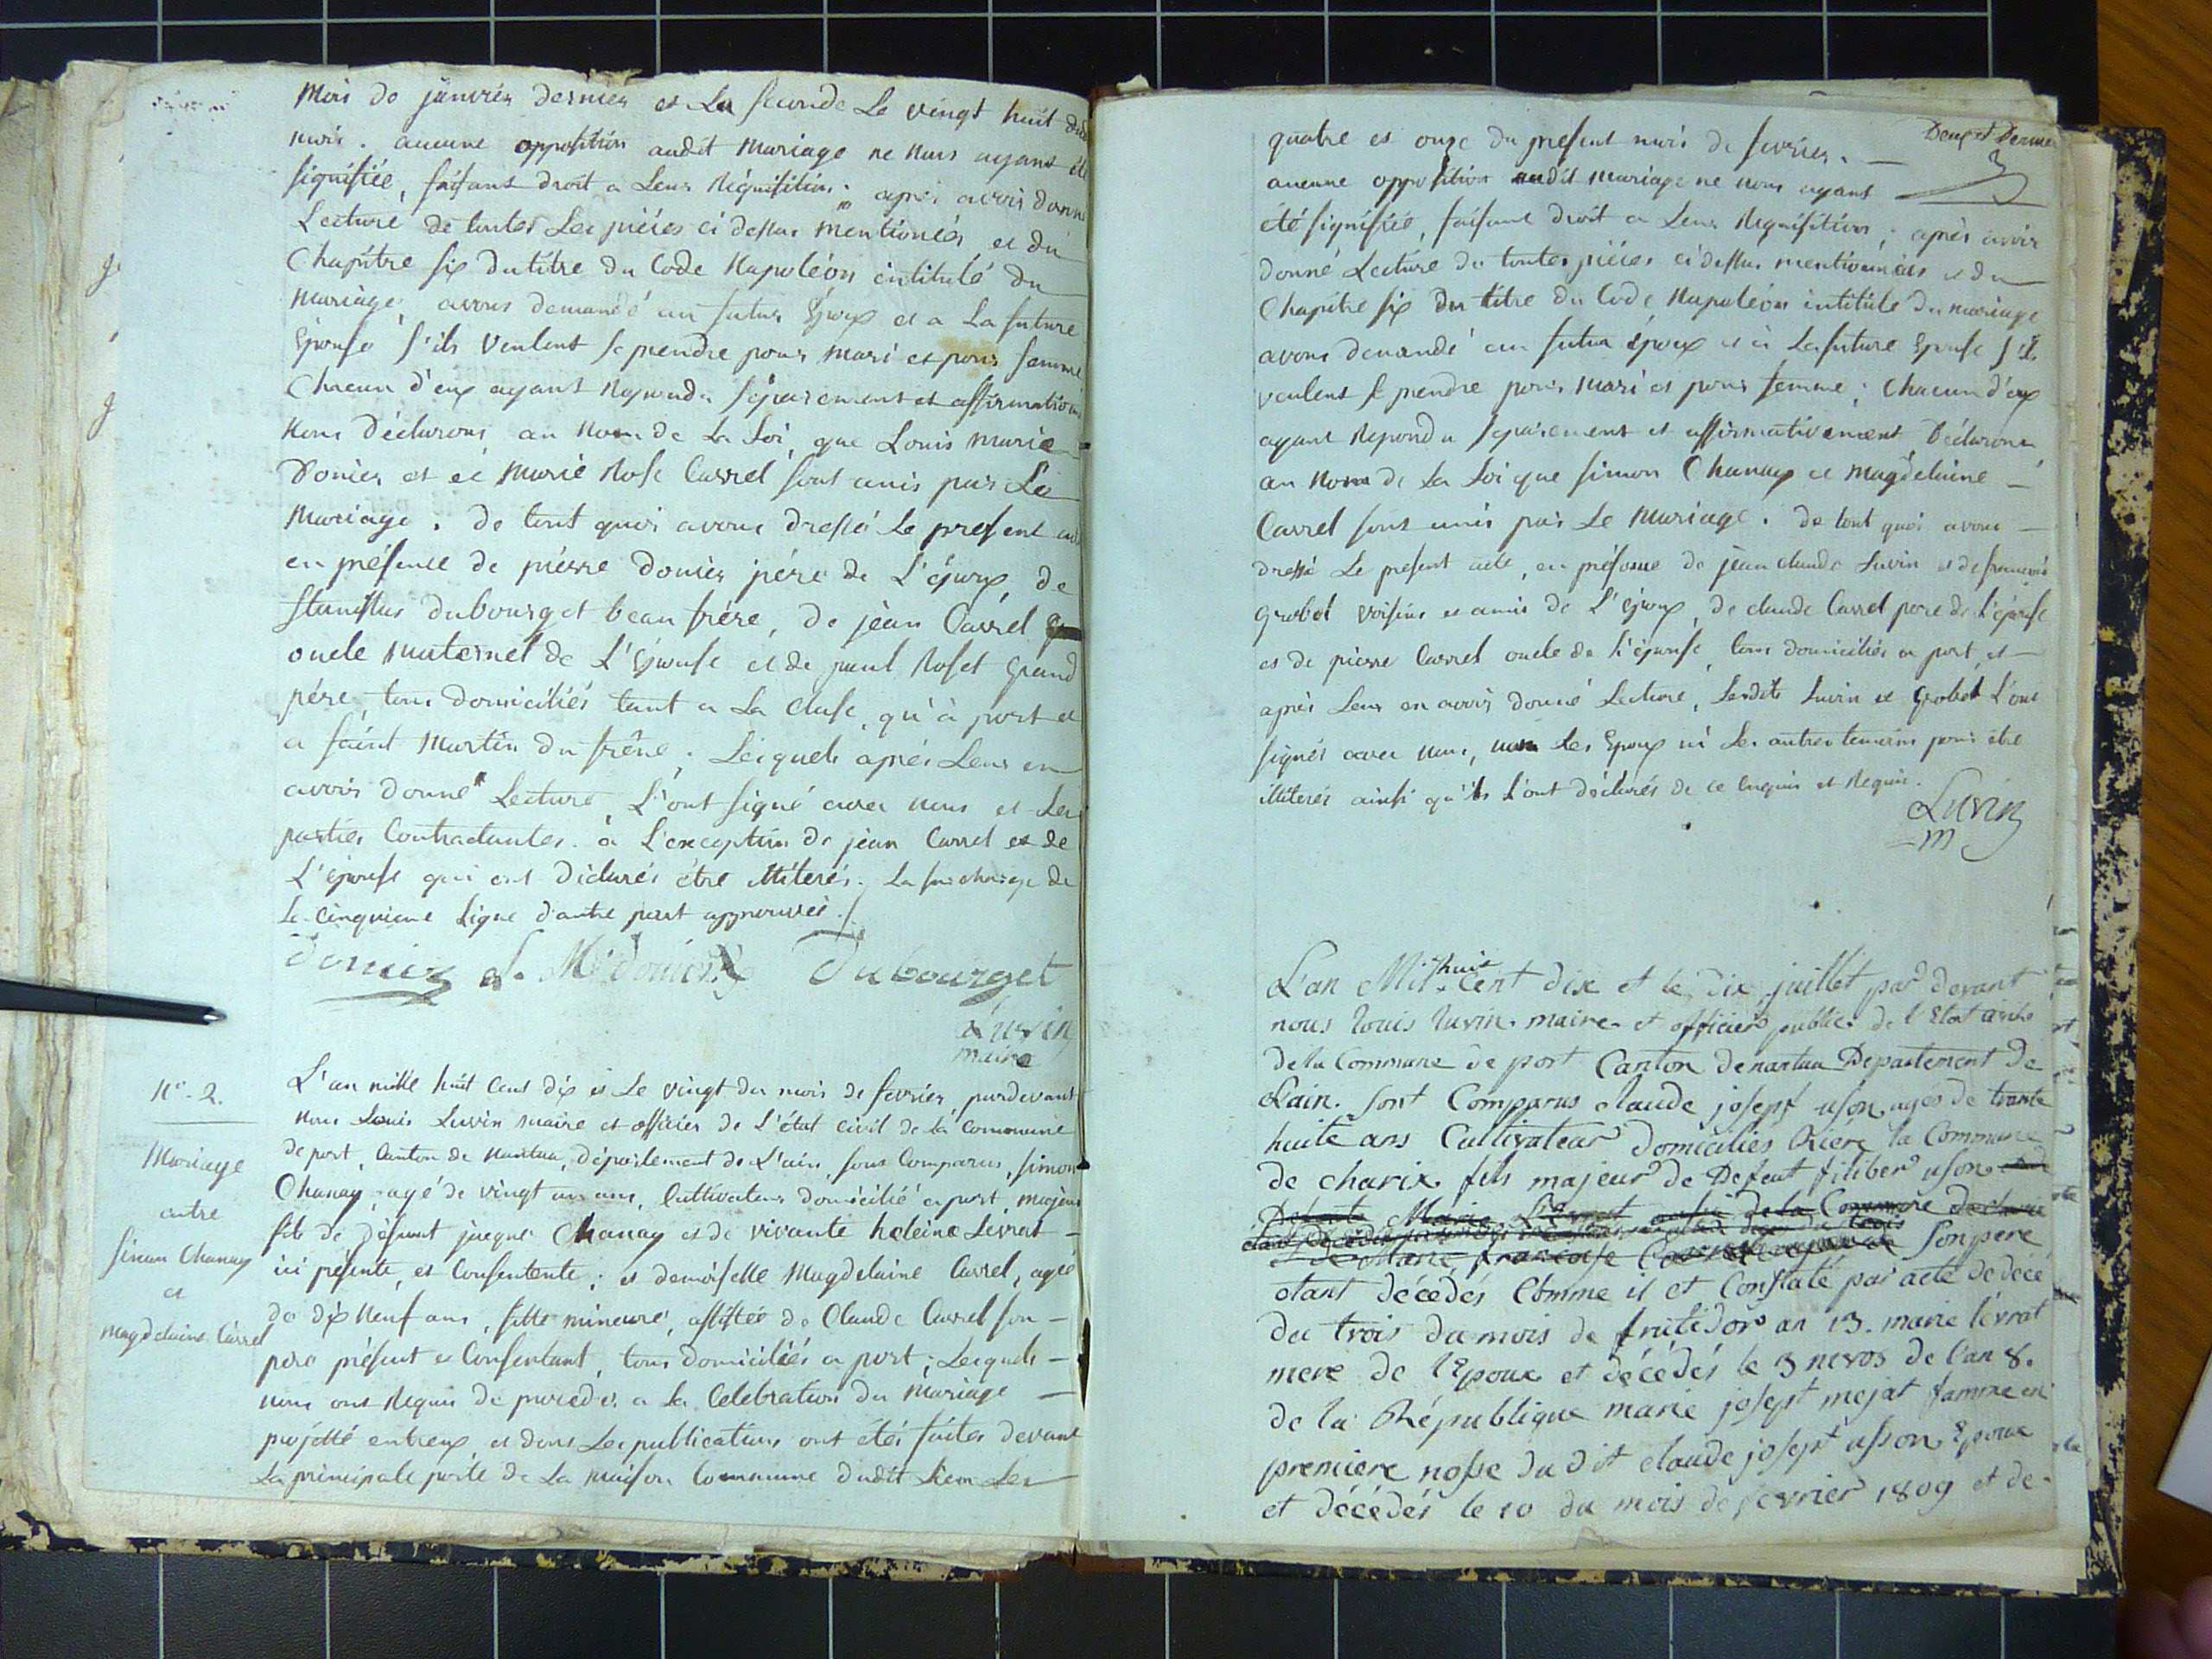 Mois de janvier dernier et La seconde Le vingt huit dudit
mois. aucune opposition audit Mariage ne nous ayant été
signifiée, faisant droit a Leur Réquisition; après avoir donné
Lecture de toutes Les pièces ci dessus mentionés, et du
Chapitre six du titre du Code Napoléon intitulé du
Mariage, avons demandé au futur Epoux et a La future
Epouse s'ils Veulent se prendre pour Mari et pour femme
Chacun d'eux ayant Repondu séparement et affirmativ
Nous Déclarons au Nom de La Loi, que Louis Marie
Donier et Marie Rose Carrel sont unis par Le
Mariage. de tout quoi avons dressé Le present acte
en présence de pierre donier père de L'époux, de
Stanislas dubourget beau frère, de jean Carrel
oncle Maternel de L'Epouse et de paul Roset Grand
père, tous domiciliés tant a La Cluse, qu'à port et
a saint Martin du frêne; Lesquels après Leur en
avoir donné Lecture, L'ont signé avec nous et Les
parties Contractantes. à L'exception de jean Carrel et de
L'épouse qui ont déclarés être illiterés. La surcharge de
La cinquieme Ligne d'autre part approuvée.
Donier L. M. donier Dubourget
Luvin
maire
N°. 2.
Mariage
entre
simon Chanay
et
Magdelaine Carrel
L'an mille huit Cent dix et Le vingt du mois de fevrier, pardevant
Nous Louis Luvin Maire et officier de L'état civil de la Commune
de port, Canton de Nantua, Département de L'ain, sont Comparus, simon
Chanay, agé de vingt un ans, Cultivateur domicilié a port, majeur
fils de Défunt jaque Chanay et de vivante heleine Levrat
ici présente, et Consentente; et demoiselle Magdelaine Carrel, agée
de dix Neuf ans, fille mineure, assistée de Claude Carrel son
père présent et Consentant, tous domiciliés a port; Lesquels
nous ont Requis de proceder a La Célébration du Mariage
projetté entreux, et dont Les publications ont étés faites devant
La principale porte de La Maison Commune dudit Lieu Les
Deux et Dernier
quatre et onze du présent mois de fevrier.
aucune opposition audit mariage ne nous ayant
été signifiée, faisant droit a Leur Requisition; après avoir
donné Lecture de toutes pièces ci dessus mentionnées et du
Chapitre six du titre du Code Napoléon intitulé du mariage
avons demandé au futur époux et à La future Epouse s'ils
veulent se prendre pour Mari et pour femme; Chacun d'eux
ayant Repondu separement et affirmativement Déclarons
au Nom de La Loi que simon Chanay et Magdelaine
Carrel sont unis par Le Mariage. de tout quoi avons
dressé Le present acte, en présence de jean claude Luvin et de francois
Grobet voisins et amis de L'Epoux, de claude Carrel pere de L'épouse
et de pierre Carrel oncle de L'épouse, tous domiciliés a port, et
après Leur en avoir donné Lecture, Lesdits Luvin et Grobet L'ont
signés avec nous, non Les Epoux ni Les autres temoins pour être
illiterés ainsi qu'ils L'ont déclarés de ce enquis et Requis.
Luvin
m
L'an Mil huit Cent dix et le dix juillet par devant
nous Louis Luvin maire et officier public de l'Etat civil
de la Commune de port Canton de nantua Departement de
Lain. sont Comparus claude josept uson agés de trante
huite ans Cultivateur domiciliés Riére la Commune
de charix fils majeur de Defeut filiber uson
Defente Marie Levrat de la Commune de charix
et de Marie francoise son pere
etant décédés Comme il et Constaté par acte de décé
du trois du mois de frutidor an 13. marie lévrat
mere de lEpoux et décédés le 3 nevos de l'an 8.
de la République marie josept mejat famme en
premiere nosse du dit claude josept usson Epoux
et décédés le 10 du mois de fevrier 1809 et de